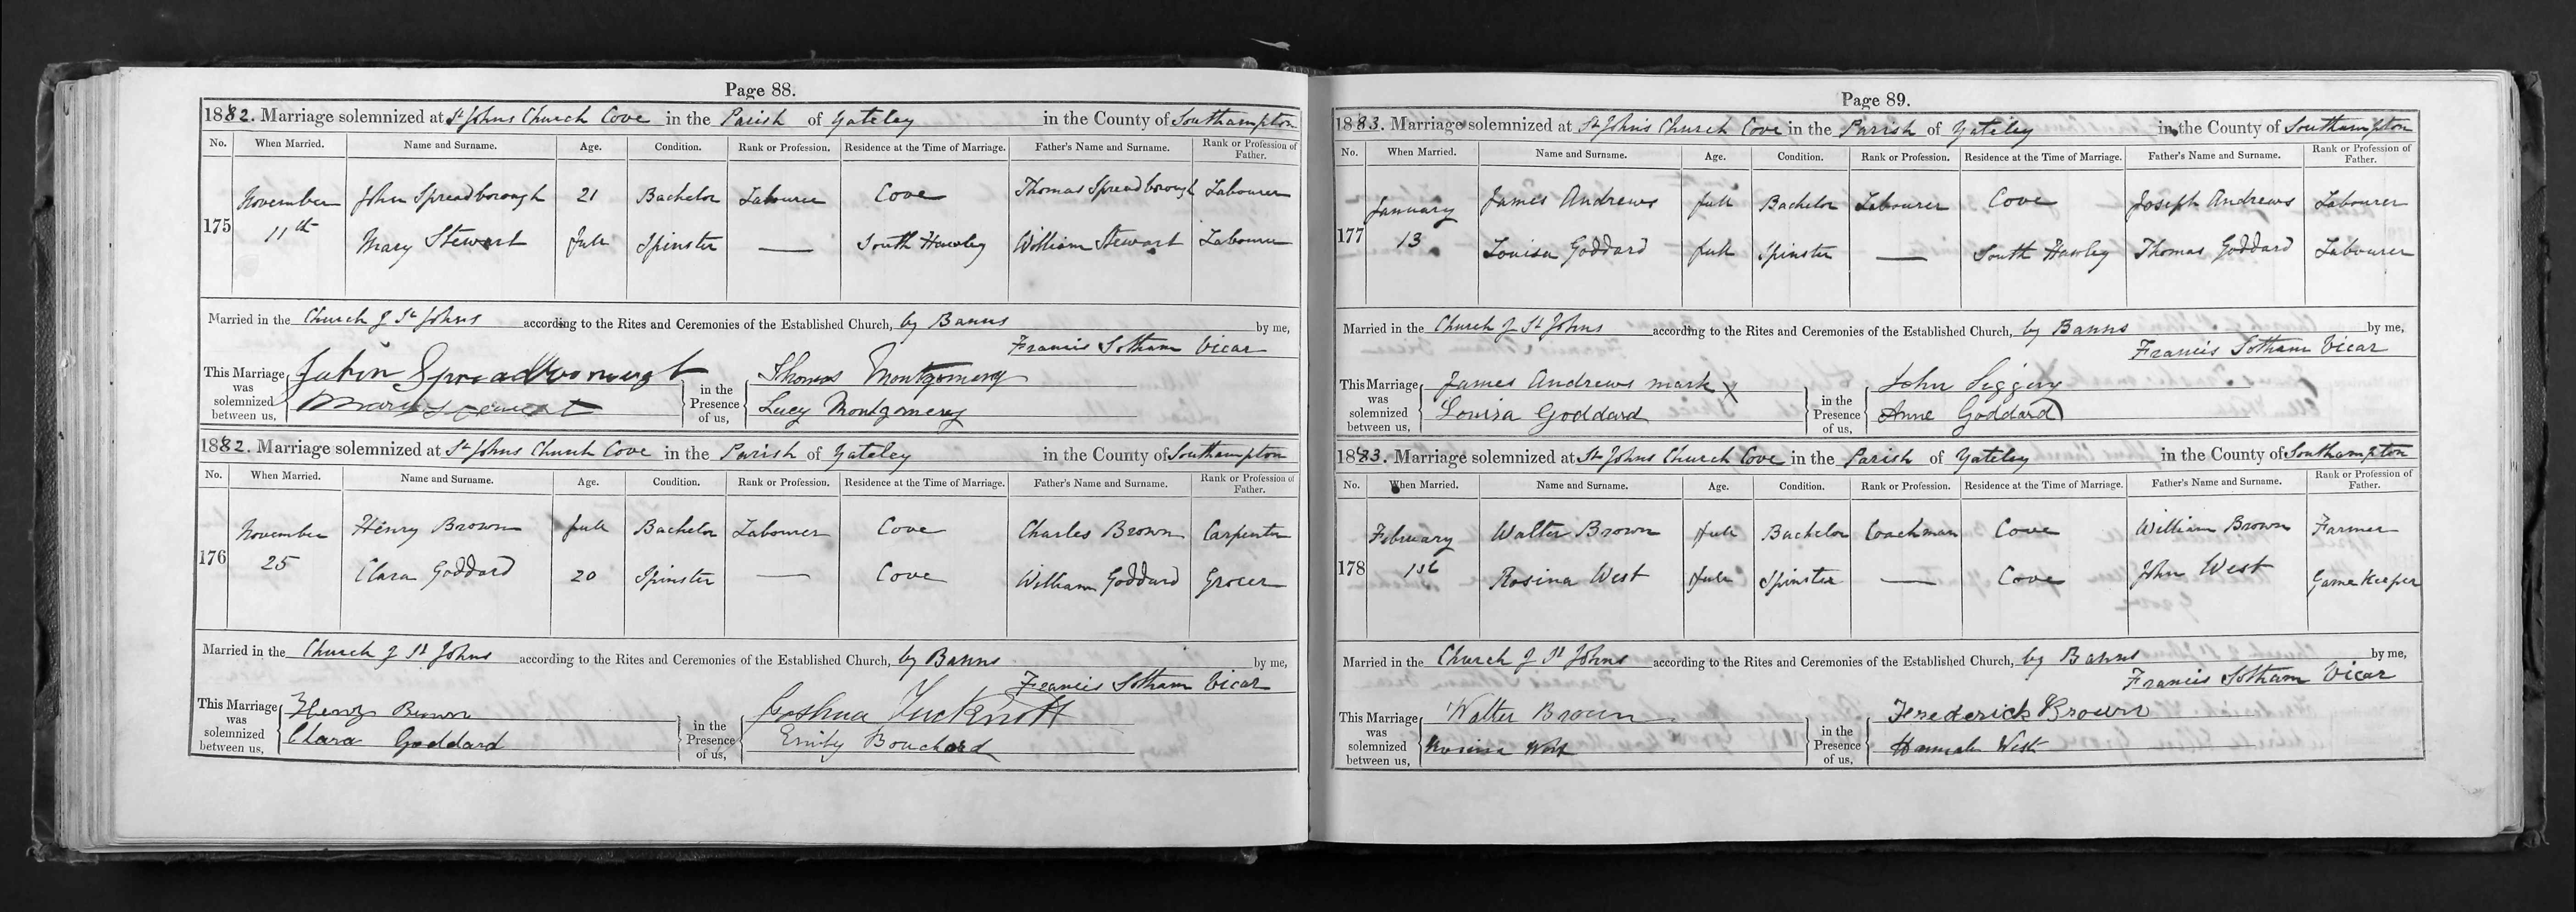 Page 88.
1882. Marriage solemnized at St Johns Church Cove in the Parish of Yateley in the County of Southampton
No. When Married. Name and Surname. Age. Condition. Rank or Profession. Residence at the Time of Marriage. Father's Name and Surname. Rank or Profession of Father.
175 November 11th John Spreadborough 21 Bachelor Labourer Cove Thomas Spreadborough Labourer
Mary Stewart full Spinster — South Hawley William Stewart Labourer
Married in the Church of St Johns according to the Rites and Ceremonies of the Established Church, by Banns by me,
Francis Sotham Vicar
This Marriage was solemnized between us, John Spreadborough
Mary Stewart
in the Presence of us, Thomas Montgomery
Lucy Montgomery
1882. Marriage solemnized at St Johns Church Cove in the Parish of Yateley in the County of Southampton
No. When Married. Name and Surname. Age. Condition. Rank or Profession. Residence at the Time of Marriage. Father's Name and Surname. Rank or Profession of Father.
176 November 25 Henry Brown full Bachelor Labourer Cove Charles Brown Carpenter
Clara Goddard 20 Spinster — Cove William Goddard Grocer
Married in the Church of St Johns according to the Rites and Ceremonies of the Established Church, by Banns by me,
Francis Sotham Vicar
This Marriage was solemnized between us, Henry Brown
Clara Goddard
in the Presence of us, Joshua Tucknott
Emily Bouchard
Page 89.
1883. Marriage solemnized at St Johns Church Cove in the Parish of Yateley in the County of Southampton
No. When Married. Name and Surname. Age. Condition. Rank or Profession. Residence at the Time of Marriage. Father's Name and Surname. Rank or Profession of Father.
177 January 13 James Andrews full Bachelor Labourer Cove Joseph Andrews Labourer
Louisa Goddard full Spinster — South Hawley Thomas Goddard Labourer
Married in the Church of St Johns according to the Rites and Ceremonies of the Established Church, by Banns by me,
Francis Sotham Vicar
This Marriage was solemnized between us, James Andrews mark X
Louisa Goddard
in the Presence of us, John
Anne Goddard
1883. Marriage solemnized at St Johns Church Cove in the Parish of Yateley in the County of Southampton
No. When Married. Name and Surname. Age. Condition. Rank or Profession. Residence at the Time of Marriage. Father's Name and Surname. Rank or Profession of Father.
178 February 1st Walter Brown full Bachelor Coachman Cove William Brown Farmer
Rosina West full Spinster — Cove John West Game Keeper
Married in the Church of St Johns according to the Rites and Ceremonies of the Established Church, by Banns by me,
Francis Sotham Vicar
This Marriage was solemnized between us, Walter Brown
Rosina West
in the Presence of us, Frederick Brown
Hannah West